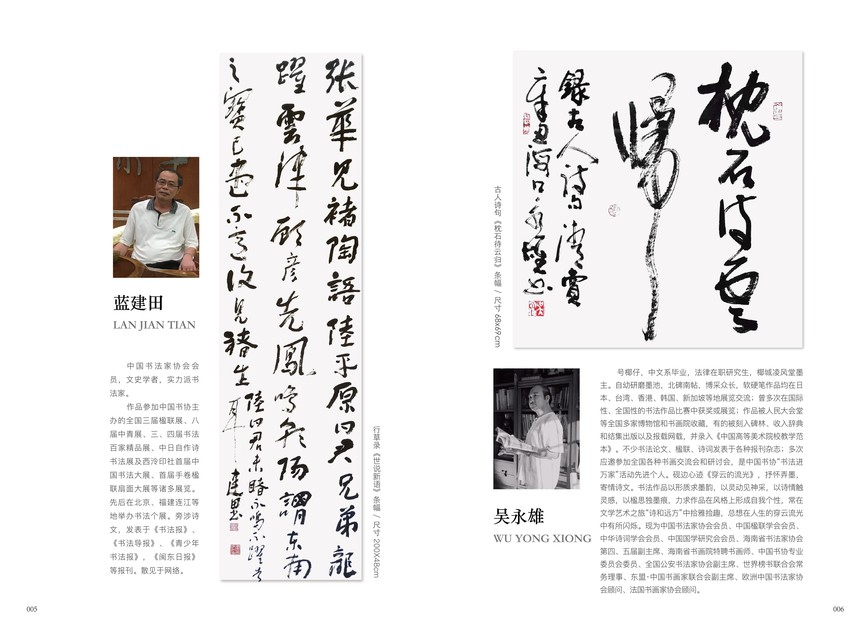 蓝建田
LAN JIAN TIAN
中国书法家协会会
员，文史学者，实力派书
法家。
作品参加中国书协主
办的全国三届楹联展、八
届中青展、三、四届书法
百家精品展、中日自作诗
书法展及西泠印社首届中
国书法大展、首届手卷楹
联扇面大展等诸多展览。
先后在北京、福建连江等
地举办书法个展。旁涉诗
文，发表于《书法报》、
《书法导报》、《青少年
书法报》、《闽东日报》
等报刊。散见于网络。
張華見褚陶語陸平原曰君兄弟龍
躍雲津顧彦先鳳鳴朝陽謂東南
之寶已盡不意復見褚生
陸曰君未睹不鳴不躍者
耳
建田
行草录《世说新语》条幅 / 尺寸 200X48cm
005
枕石待雲
歸
録古人詩句 清賞
辛丑海口永雄書
古人诗句《枕石待云归》条幅 / 尺寸 68x69cm
吴永雄
WU YONG XIONG
号椰仔，中文系毕业，法律在职研究生，椰城凌风堂墨
主。自幼研磨墨池、北碑南帖，博采众长，软硬笔作品均在日
本、台湾、香港、韩国、新加坡等地展览交流；曾多次在国际
性、全国性的书法作品比赛中获奖或展览；作品被人民大会堂
等全国多家博物馆和书画院收藏，有的被刻入碑林、收入辞典
和结集出版以及报载网载，并录入《中国高等美术院校教学范
本》。不少书法论文、楹联、诗词发表于各种报刊杂志；多次
应邀参加全国各种书画交流会和研讨会，是中国书协“书法进
万家”活动先进个人。砚边心迹《穿云的流光》，抒怀弄墨，
寄情诗文。书法作品以形质求墨韵，以灵动见神采，以诗情触
灵感，以楹思独墨痕，力求作品在风格上形成自我个性，常在
文学艺术之旅“诗和远方”中拾雅捡趣，总想在人生的穿云流光
中有所闪烁。现为中国书法家协会会员、中国楹联学会会员、
中华诗词学会会员、中国国学研究会会员、海南省书法家协会
第四、五届副主席、海南省书画院特聘画师、中国书协专业
委员会委员、全国公安书法家协会副主席、世界榜书联合会常
务理事、东盟-中国书画家联合会副主席、欧洲中国书法家协
会顾问、法国书画家协会顾问。
006